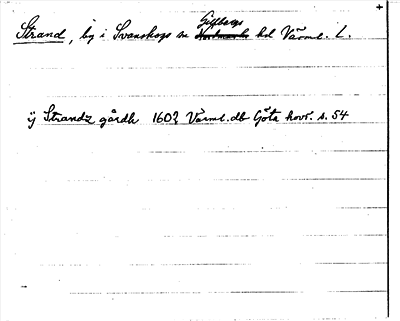 Strand, by i Svanskogs sn Gillbergs hd Värml. L.
ÿ Strandz gårdh 1602 Värml. db Göta hovr. s. 54